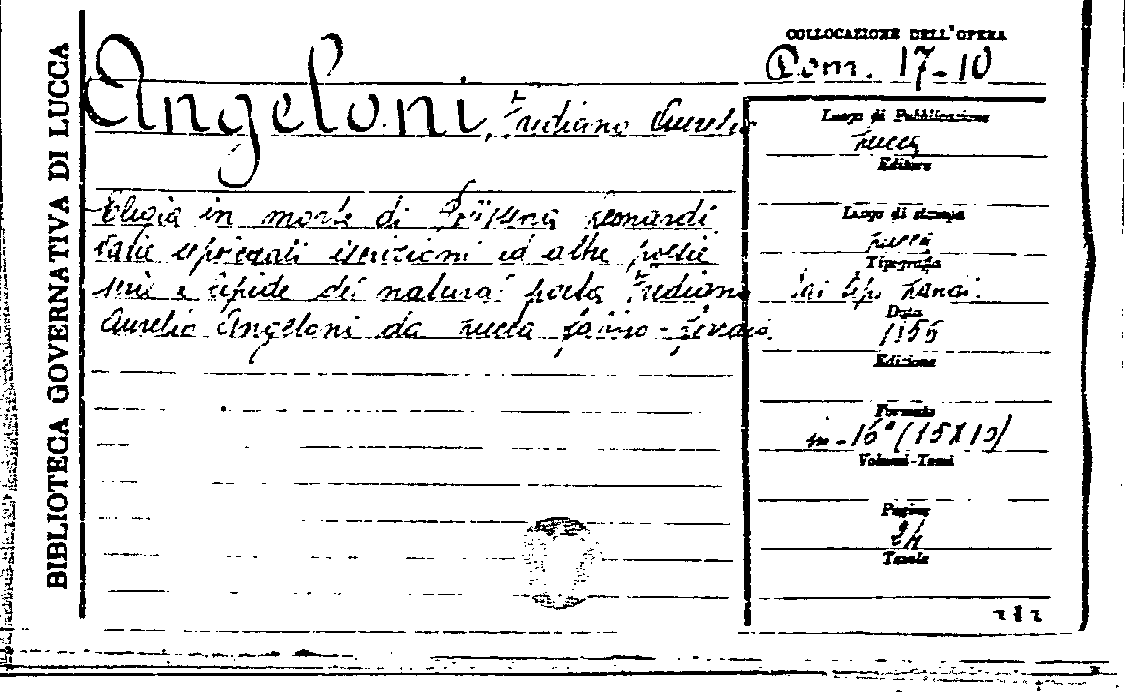 BIBLIOTECA GOVERNATIVA DI LUCCA
COLLOCAZIONE DELL'OPERA
Dom. 17-10
Angeloni, Frediano Aurelio
Elegia in morte di Leonardi
iscrizioni ed altre poesie
serie e lepide del natural poeta Frediano
Aurelio Angeloni da Lucca
Luogo di Pubblicazione
Lucca
Editore
Luogo di stampa
Lucca
Tipografia
tip.
Data
Edizione
Formato
in-16° (15X10)
Volumi-Tomi
Pagine
24
Tavole